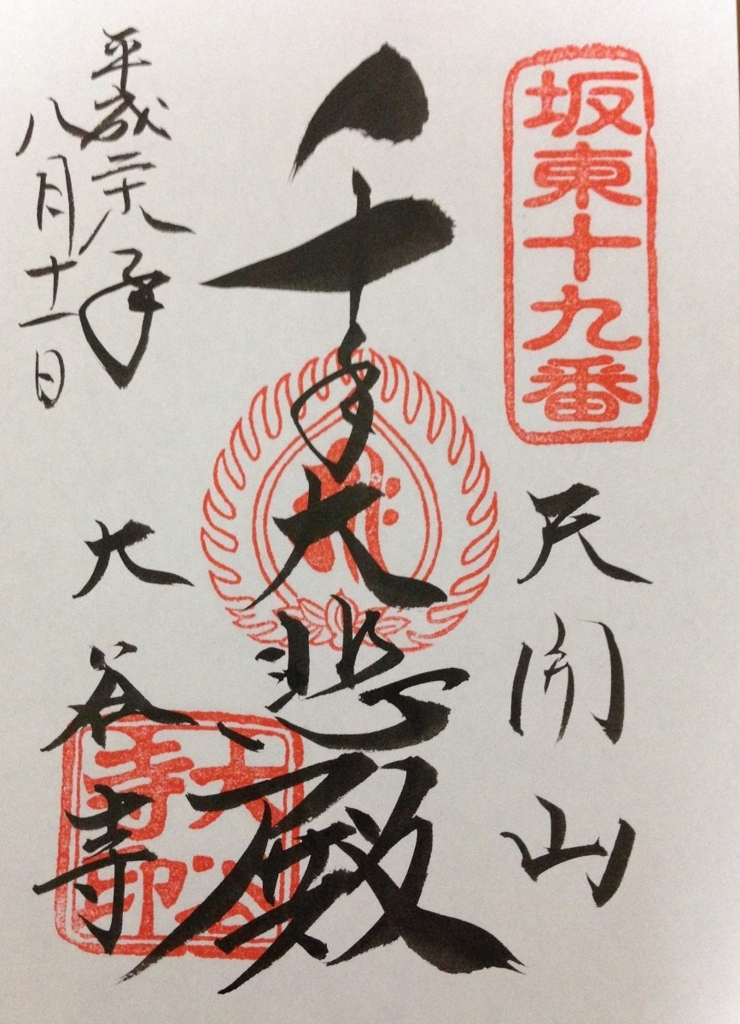 坂東十九番
天開山
千手大悲殿
大谷寺
大谷寺印
平成二十八年
八月十一日